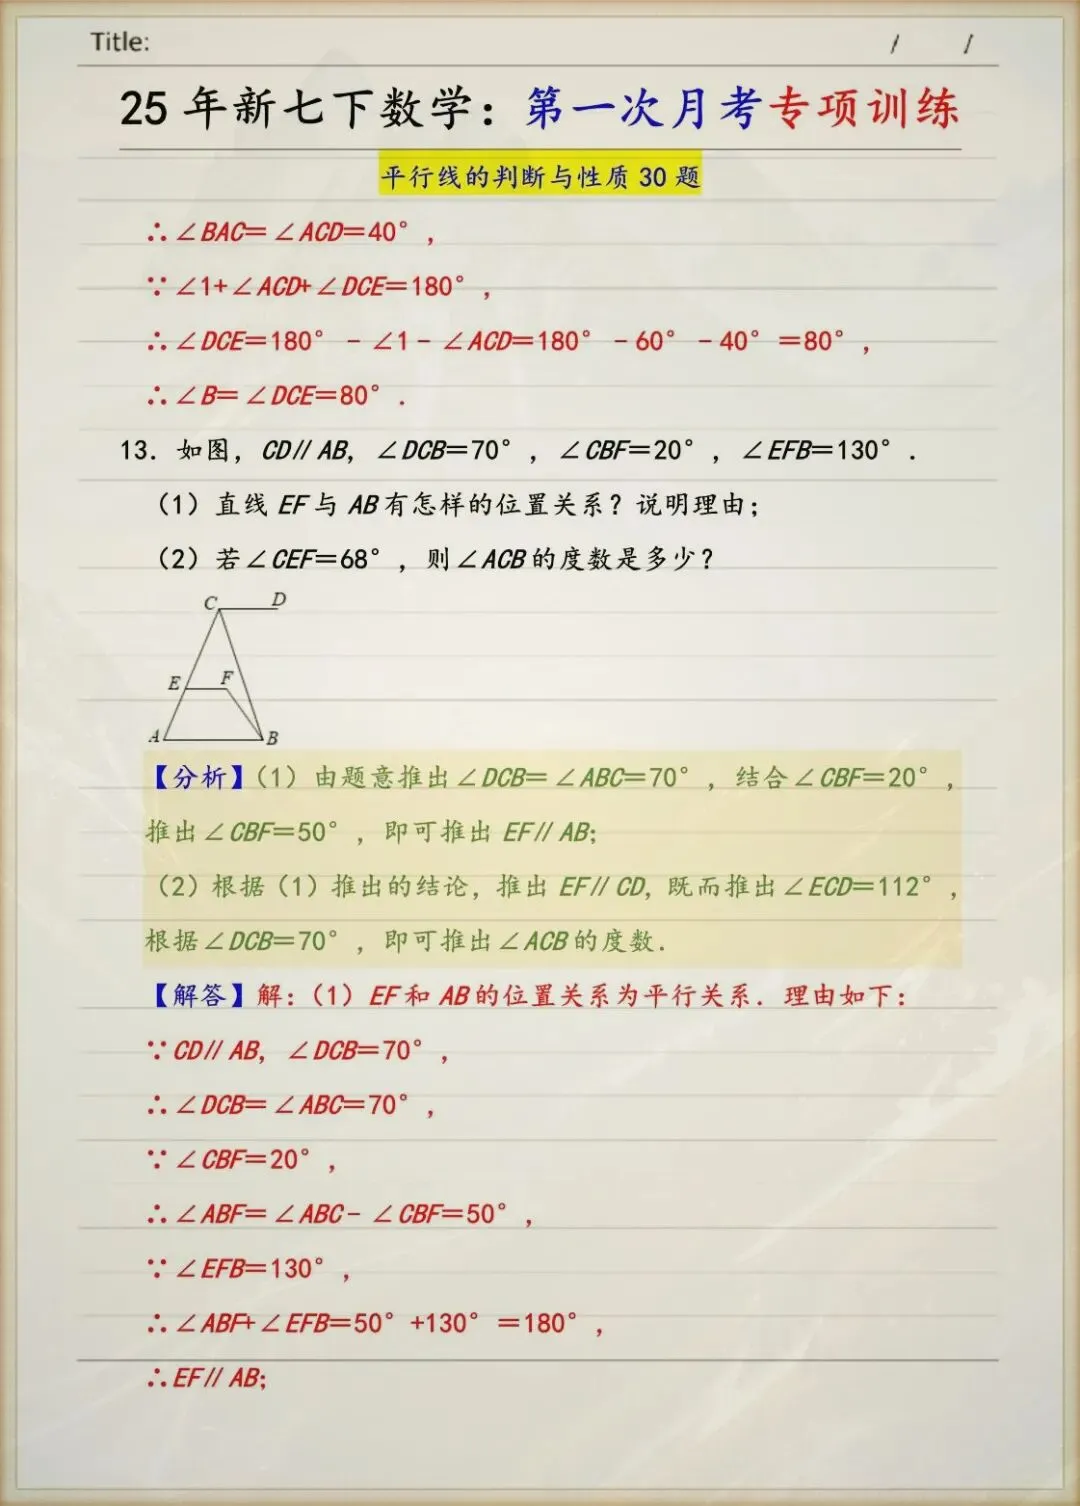 Title: / /
25年新七下数学：第一次月考专项训练
平行线的判断与性质30题
∴∠BAC＝∠ACD＝40°，
∵∠1+∠ACD+∠DCE＝180°，
∴∠DCE＝180°－∠1－∠ACD＝180°－60°－40°＝80°，
∴∠B＝∠DCE＝80°．
13．如图，CD∥AB，∠DCB＝70°，∠CBF＝20°，∠EFB＝130°．
（1）直线EF与AB有怎样的位置关系？说明理由；
（2）若∠CEF＝68°，则∠ACB的度数是多少？
C D
E F
A B
【分析】（1）由题意推出∠DCB＝∠ABC＝70°，结合∠CBF＝20°，
推出∠CBF＝50°，即可推出EF∥AB；
（2）根据（1）推出的结论，推出EF∥CD，既而推出∠ECD＝112°，
根据∠DCB＝70°，即可推出∠ACB的度数．
【解答】解：（1）EF和AB的位置关系为平行关系．理由如下：
∵CD∥AB，∠DCB＝70°，
∴∠DCB＝∠ABC＝70°，
∵∠CBF＝20°，
∴∠ABF＝∠ABC－∠CBF＝50°，
∵∠EFB＝130°，
∴∠ABF+∠EFB＝50°+130°＝180°，
∴EF∥AB；